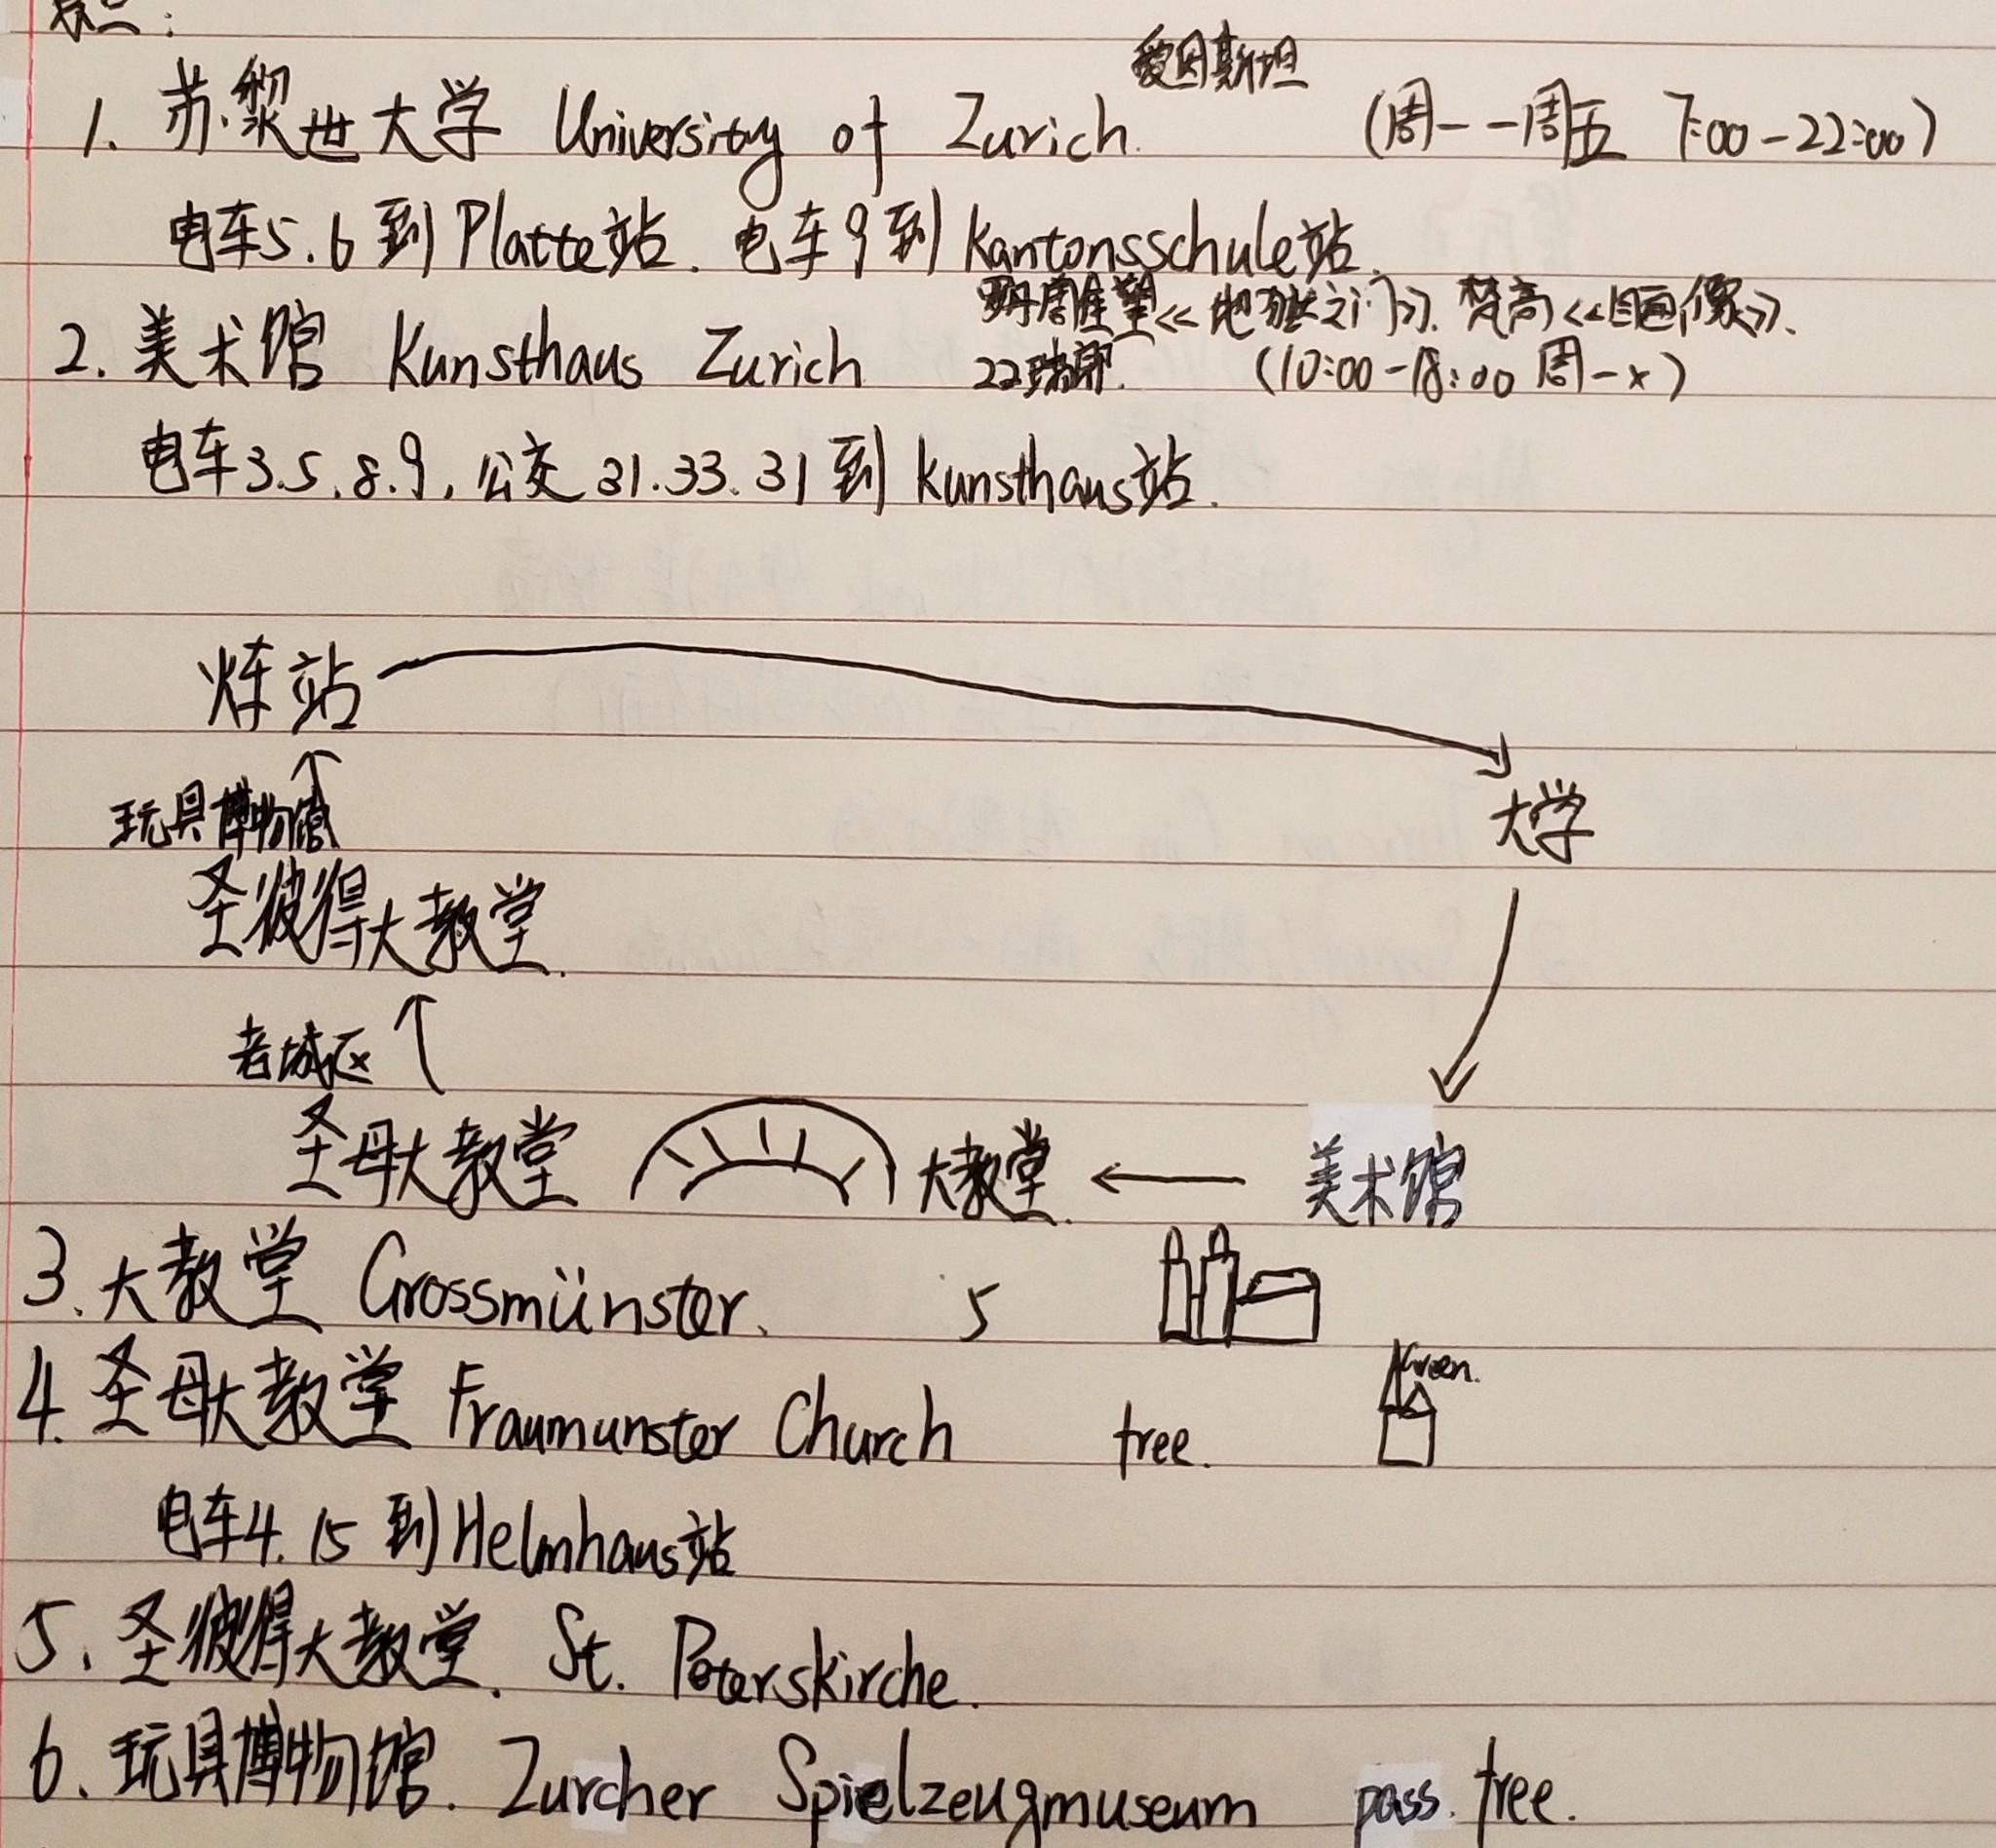 景点：
爱因斯坦
1. 苏黎世大学 University of Zurich. (周一一周五 7:00-22:00)
电车5.6 到 Platte站. 电车9到 Kantonsschule站.
罗丹雕塑《地狱之门》. 梵高《自画像》.
2. 美术馆 Kunsthaus Zurich 22瑞郎. (10:00-18:00 周一x)
电车3.5.8.9, 公交 31.33.31 到 kunsthaus站.
火车站
玩具博物馆
大学
圣彼得大教堂.
老城区
圣母大教堂 大教堂. 美术馆
3. 大教堂 Grossmünster. 5
Green.
4. 圣母大教堂 Fraumunster Church free.
电车4.15 到 Helmhaus站
5. 圣彼得大教堂. St. Peterskirche.
6. 玩具博物馆. Zurcher Spielzeugmuseum pass. free.